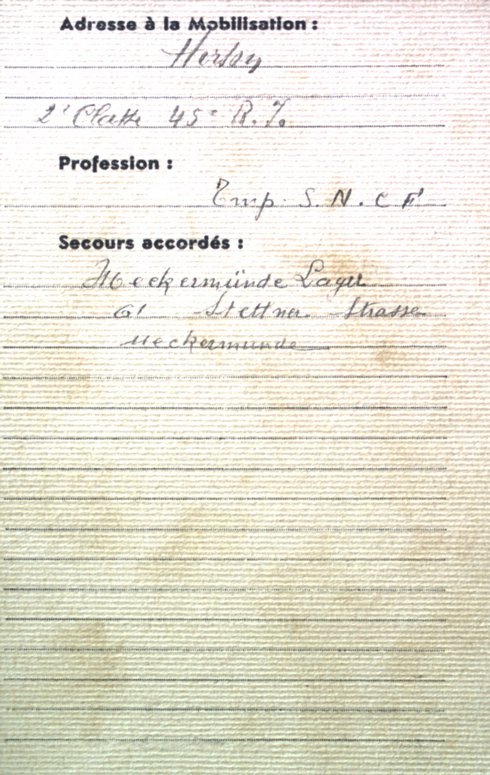 Adresse à la Mobilisation :
Hirson
2e Classe 45e R. I.
Profession :
Emp. S. N. C F
Secours accordés :
Ueckermünde Lager
61 Stettner Strasse
Ueckermunde